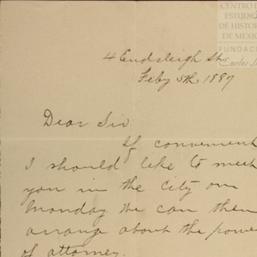 CENTRO
ESTUDIO
DE HISTOR
DE MEXIC
FUNDACI
Carlos Sl
4 Endsleigh Str
Feby 5th 1889
Dear Sir
If convenient
I should like to meet
you in the city on
Monday We can then
arrange about the power
of attorney.